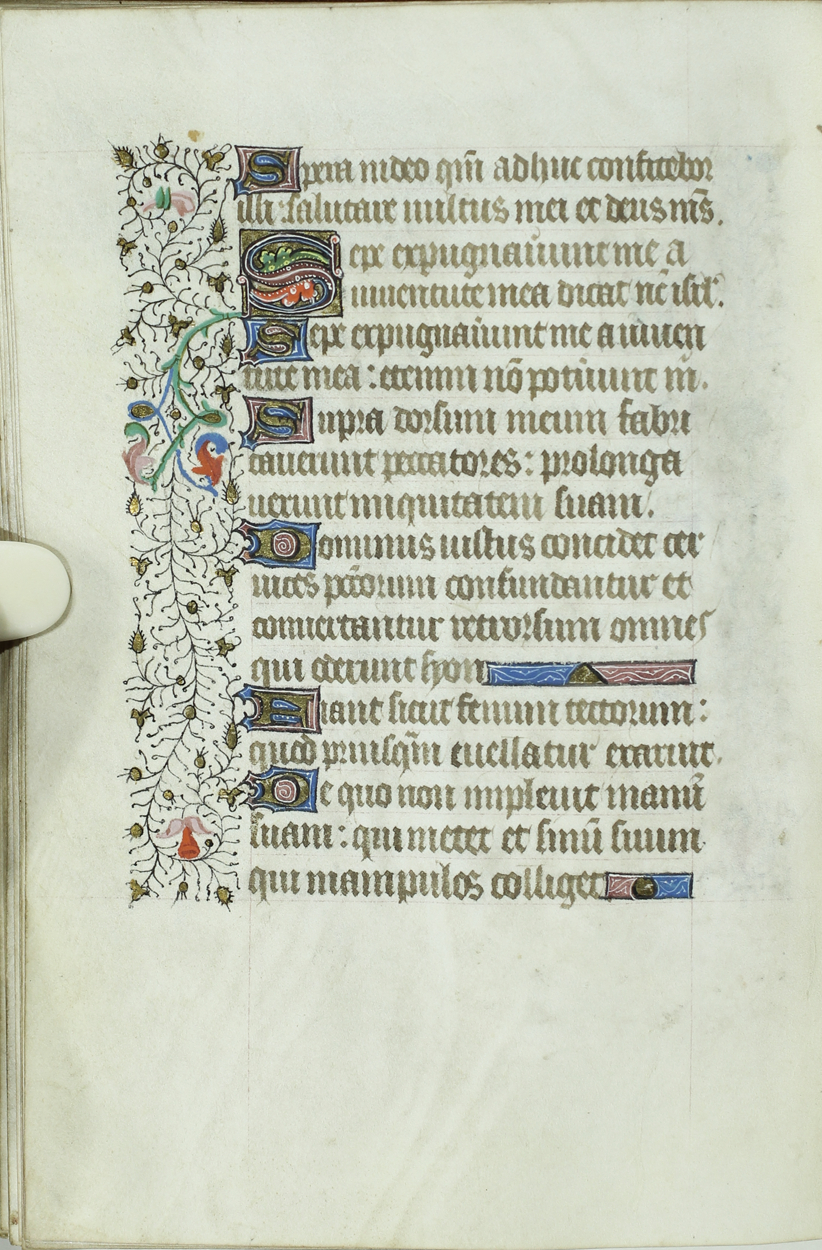 Spera in deo qm̄ adhuc confitebor
illi : salutare uultus mei et deus ms̄.
Sepe expugnauerunt me a
iuuentute mea dicat nc̄ isrl'.
Sepe expugnauerunt me a iuuen
tute mea : etenim nō potuerunt m̄.
Supra dorsum meum fabri
cauerunt peccatores : prolonga
uerunt iniquitatem suam.
Dominus iustus concidet cer
uices pctōrum confundantur et
conuertantur retrorsum omnes
qui oderunt syon
Fiant sicut fenum tectorum :
quod priusqm̄ euellatur exaruit.
De quo non impleuit manū
suam : qui metet et sinū suum
qui manipulos colliget